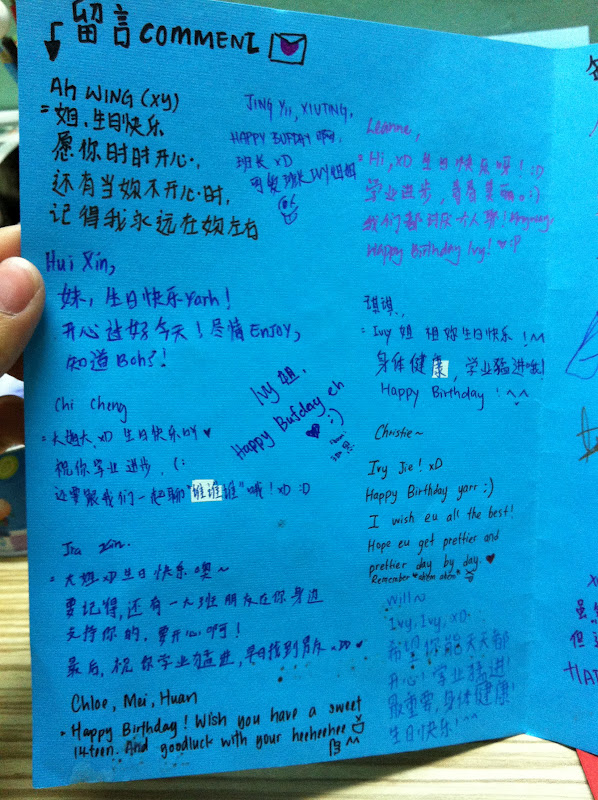 留言 COMMENT
Ah WING (XY)
= 姐,生日快乐
愿你时时开心.,
还有当妳不开心时,
记得我永远在妳左右
JING YII, XIUTING,
HAPPY BUFDAY 啊,
班长 xD
班长 IVY 姐姐
Leanne,
= Hi, xD 生日快乐呀! :D
学业进步,
我们都
Happy Birthday Ivy! ♥ :P
Hui Xin,
妹,生日快乐 Yarh!
开心过好今天!尽情 Enjoy,
知道 Boh?!
琪琪,
= Ivy 姐 相妳生日快乐!^^
身体健康,学业猛进哦!
Happy Birthday !^^
Ivy 姐,
Happy Bufday eh
♥ :)
Chi Cheng
= 大姐大,xD 生日快乐吖 ♥
祝你学业进步, (:
还要跟我们一起聊"谁谁谁"哦!xD :D
Christie~
Ivy Jie! xD
Happy Birthday yarr :)
I wish eu all the best!
Hope eu get prettier and
prettier day by day. ♥
Remember "ahem ahem"
Jia Xin.
= 大姐 xD 生日快乐噢~
要记得,还有一大班朋友在你身边
支持你的,要开心啊!
最后,祝你学业猛进,早日找到男友 xDD ♥
Will~
Ivy, Ivy, xD.
希望你能天天都
开心!学业猛进!
最重要,身体健康!
生日快乐!^^
Chloe, Mei, Huan
• Happy Birthday! Wish you have a sweet
14-teen. And goodluck with your heeheehee
^^